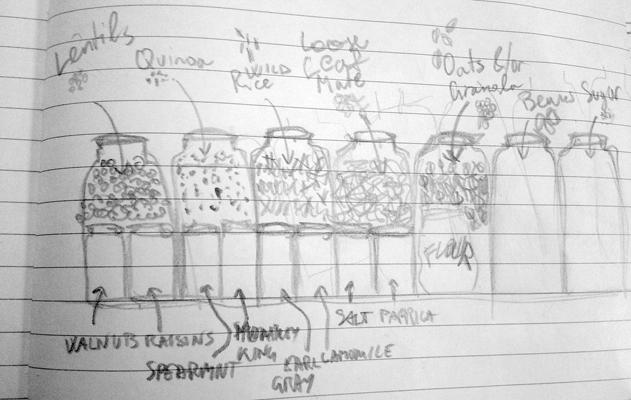 Lentils
Quinoa
WILD
Rice
Loose
Leaf
Mate
Oats &/or
Granola
Beans
Sugar
FLOUR
WALNUTS
RAISINS
SPEARMINT
MONKEY
KING
EARL
GRAY
CAMOMILE
SALT
PAPRICA